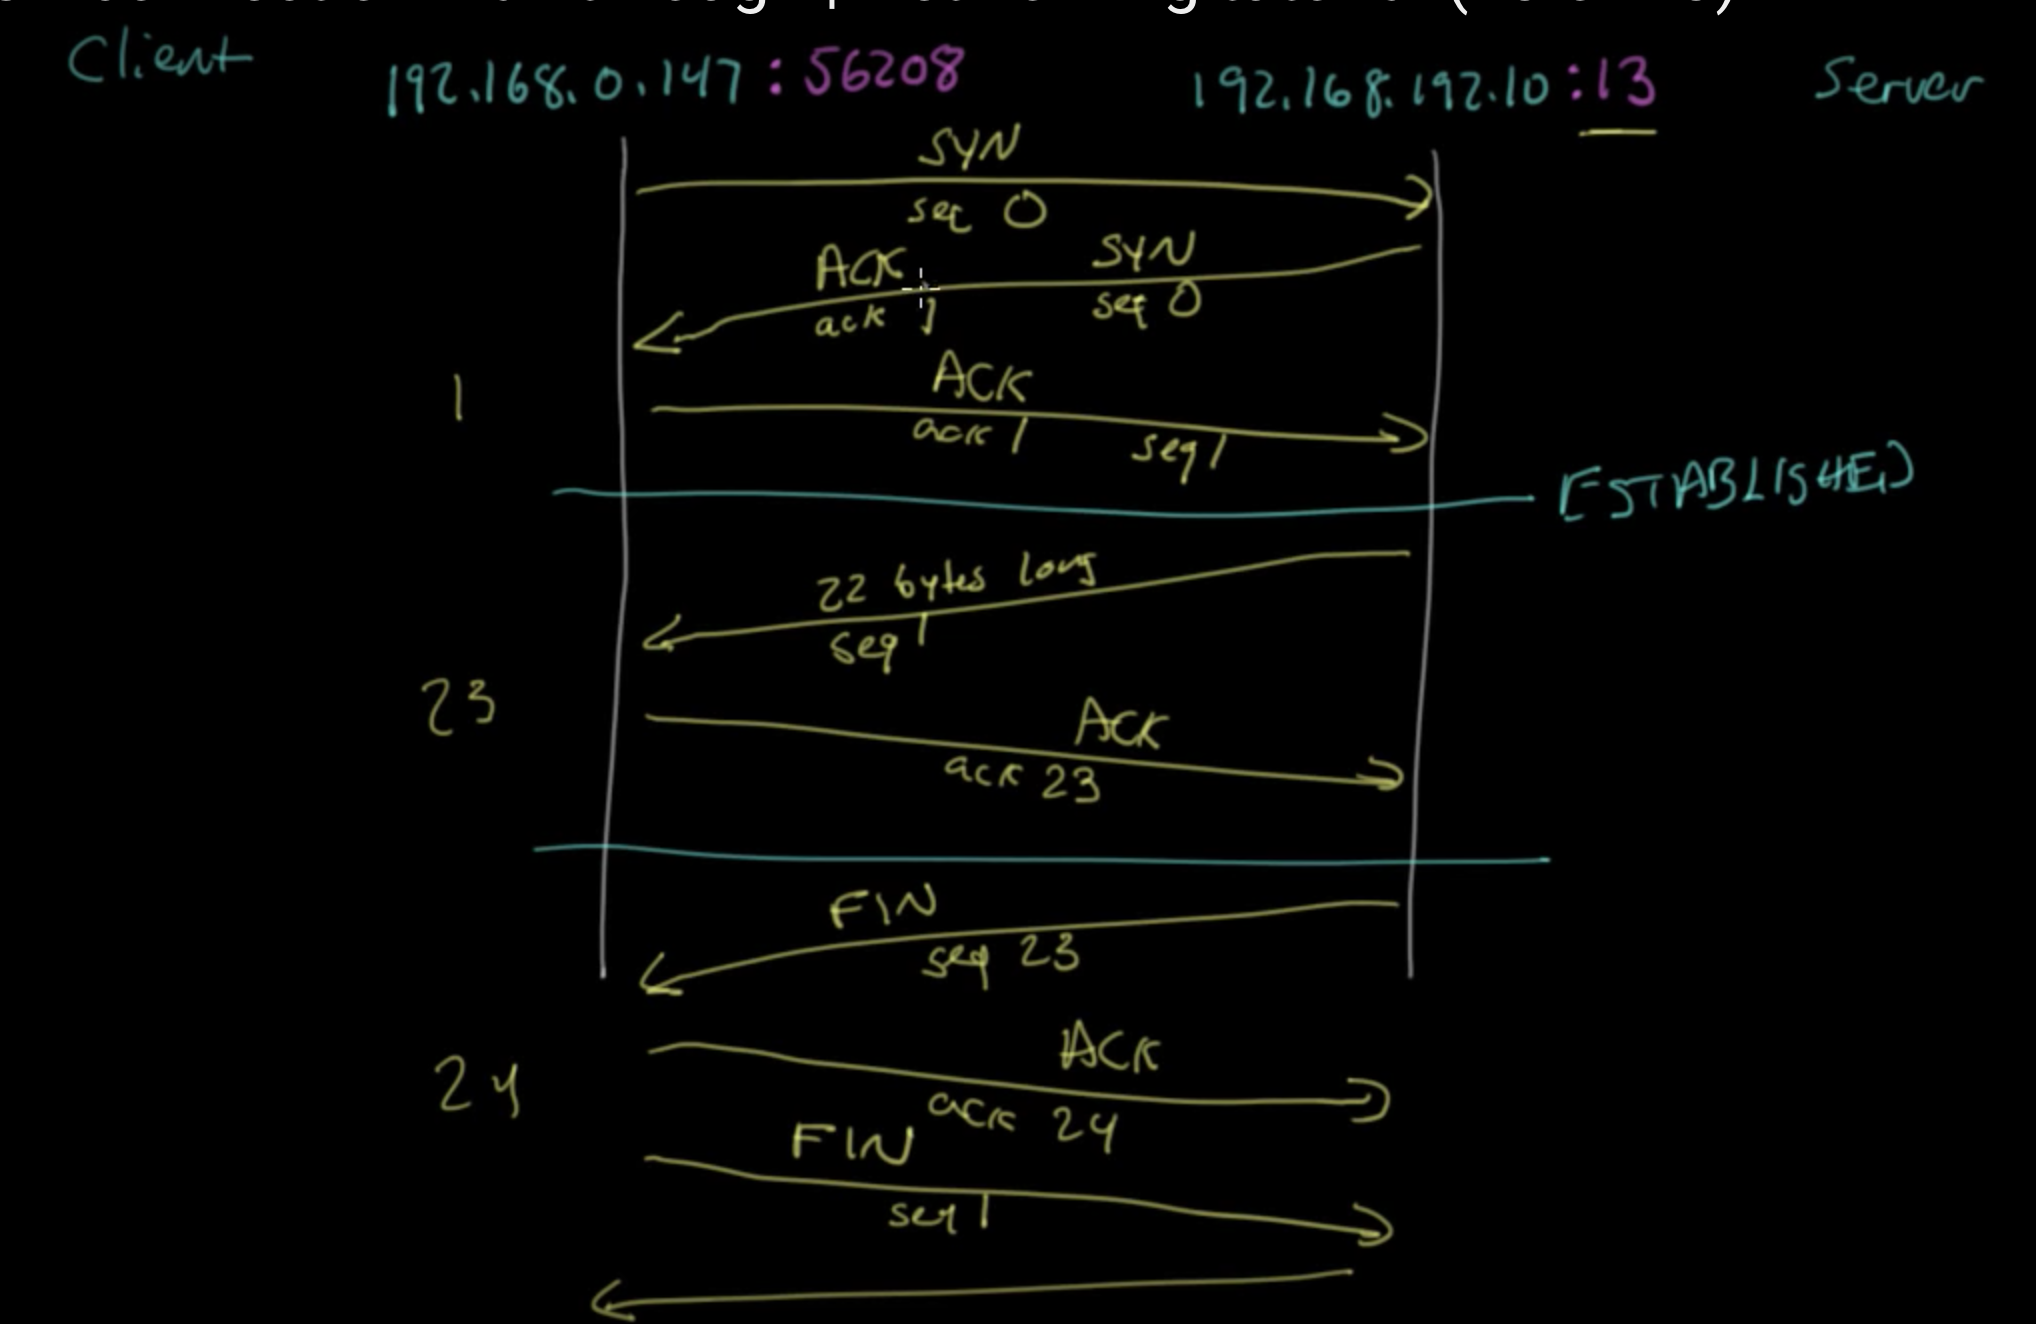 Client 192.168.0.147 :56208 192.168.192.10 :13 Server
SYN
seq 0
SYN
ACK
seq 0
ack 1
1
ACK
ack 1 seq 1
ESTABLISHED
22 bytes long
seq 1
23
ACK
ack 23
FIN
seq 23
24
ACK
ack 24
FIN
seq 1